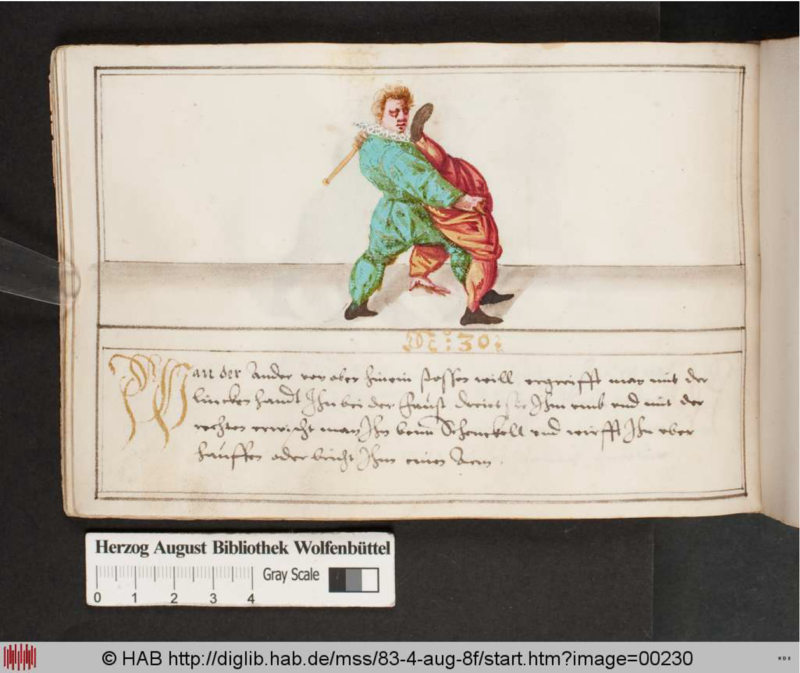 Nr: 30:
Wan der Ander von ober hinein stossen will ergreifft man mit der
lincken handt Ihn bei der faust dreiet sie Ihm umb und mit der
rechten erwischt man Ihn beim Schenckell und wirfft Ihn uber
hauffen oder bricht Ihm einen Arm
Herzog August Bibliothek Wolfenbüttel
Gray Scale
0 1 2 3 4
© HAB http://diglib.hab.de/mss/83-4-aug-8f/start.htm?image=00230